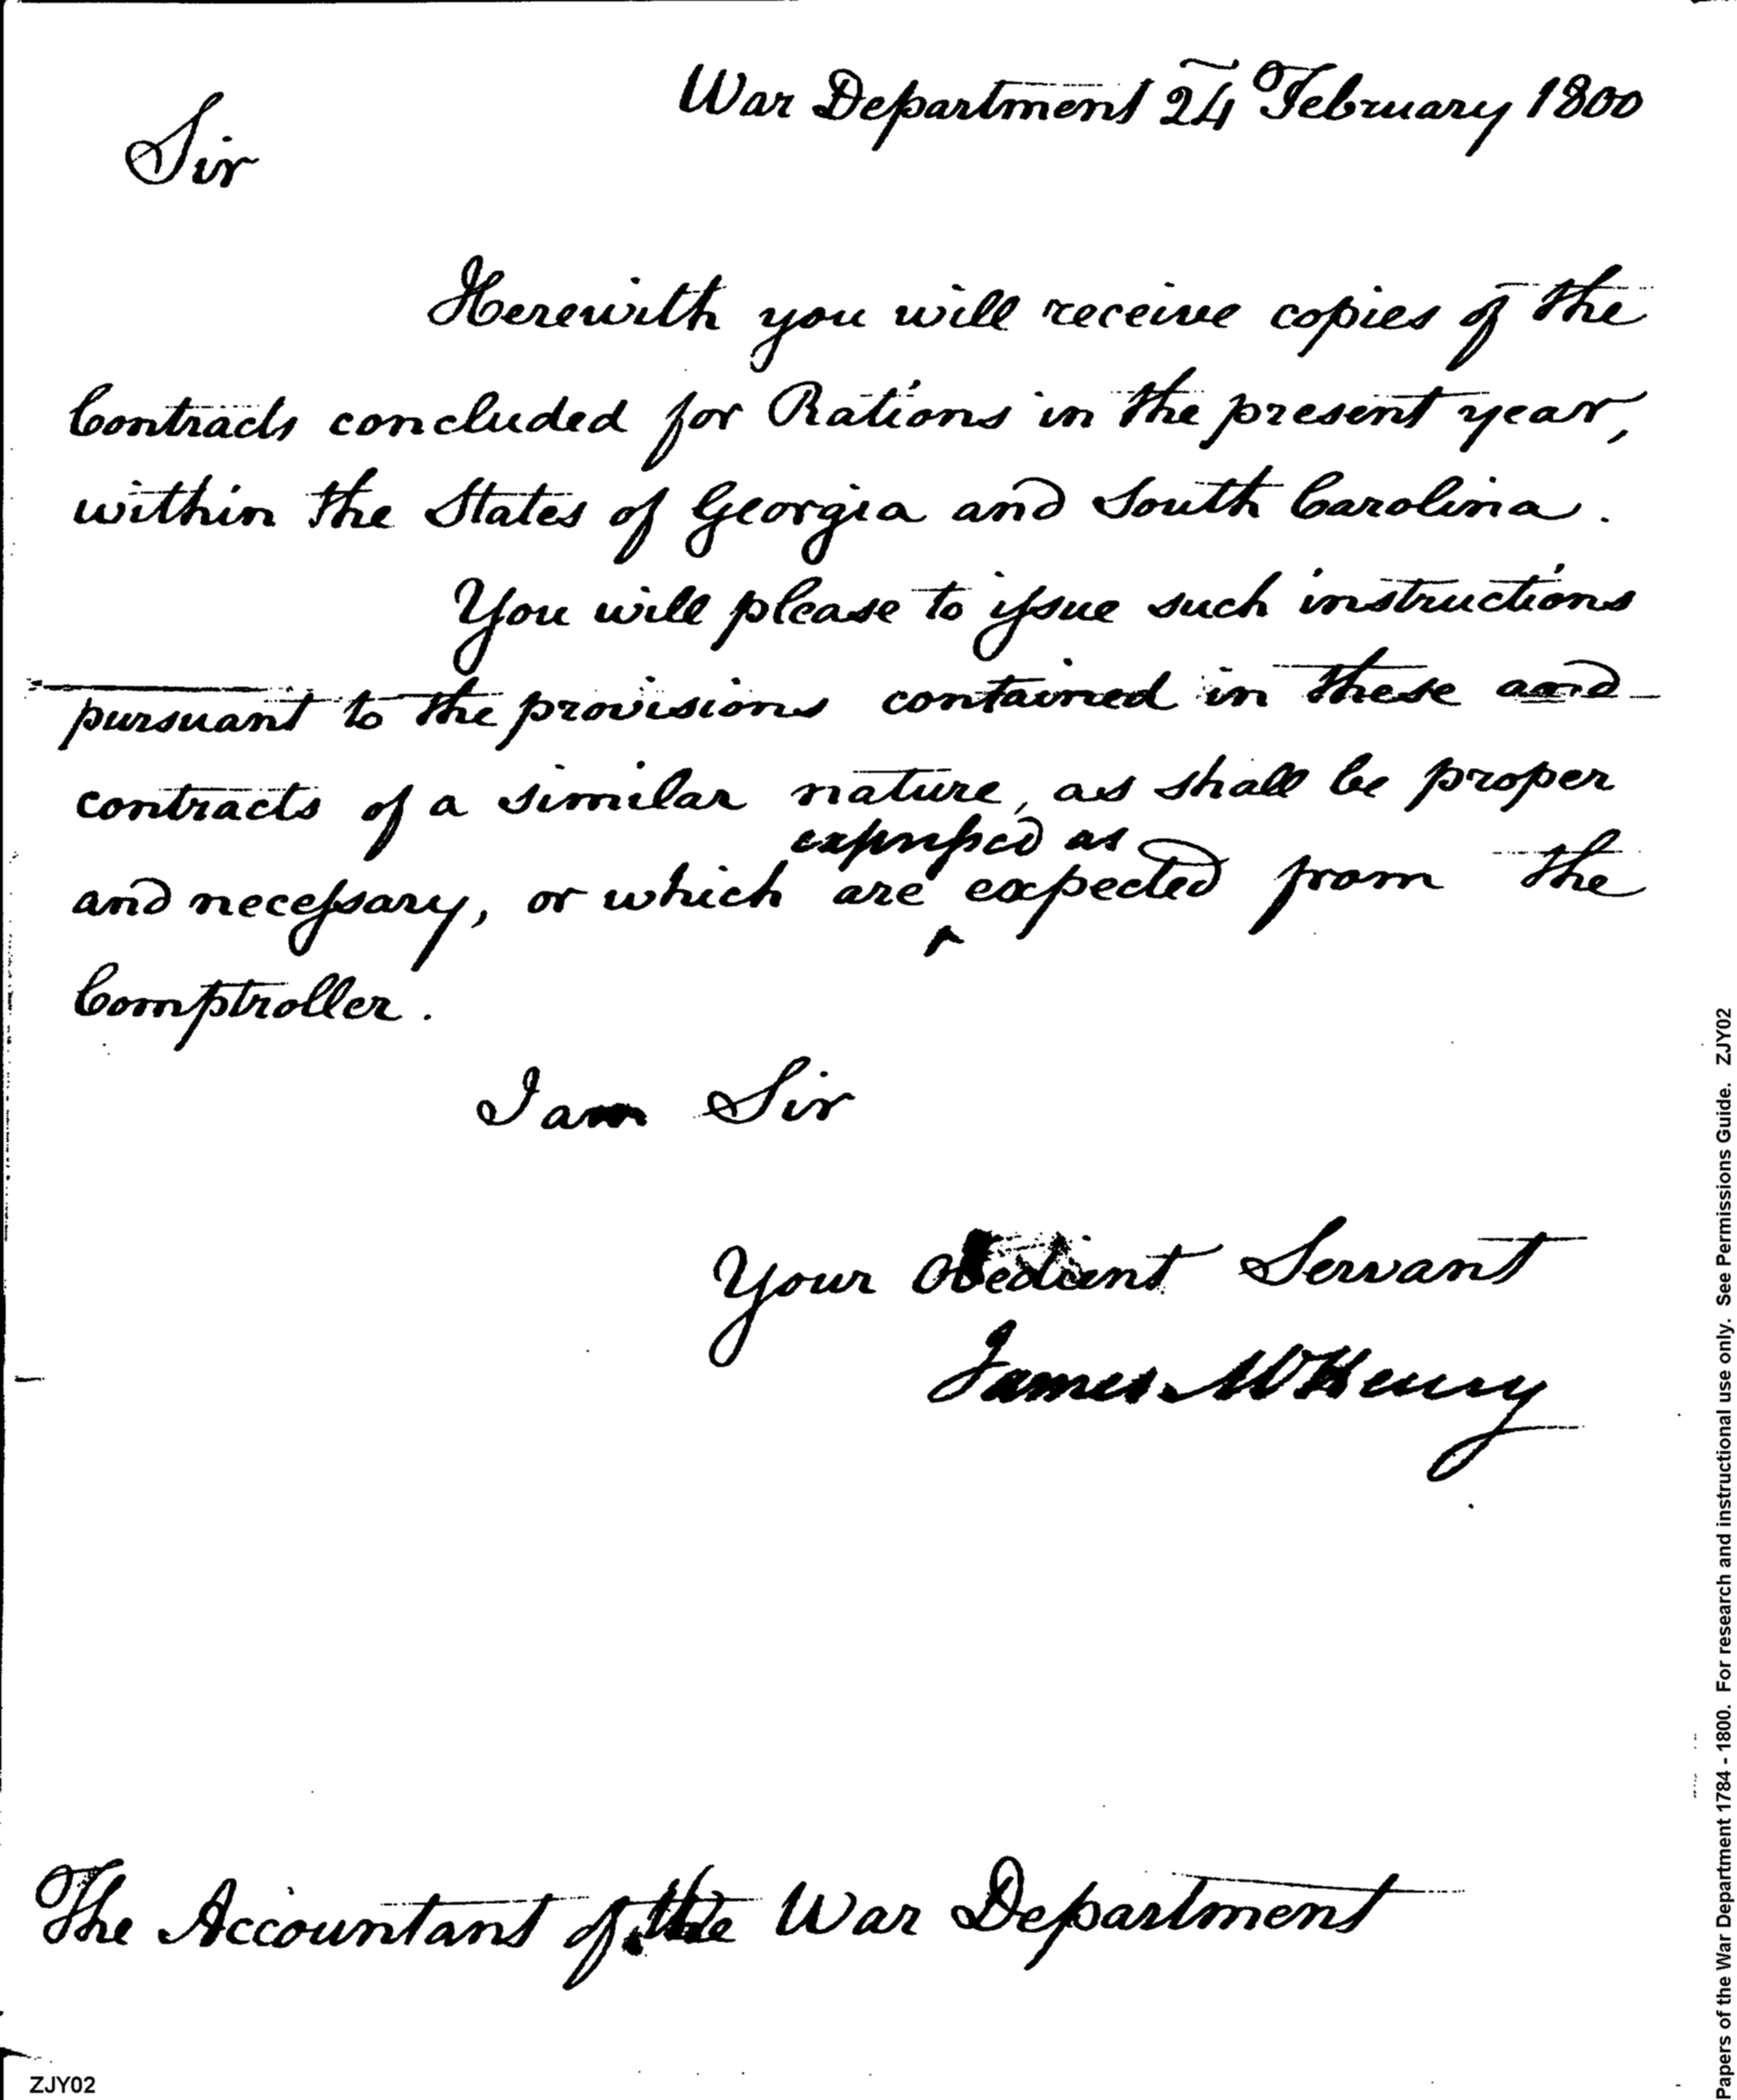 War Department 24 February 1800
Sir
Herewith you will receive copies of the
Contracts concluded for Rations in the present year,
within the States of Georgia and South Carolina.
You will please to issue such instructions
pursuant to the provisions contained in these and
contracts of a similar nature, as shall be proper
expressed as
and necessary, or which are expected from the
Comptroller.
I am Sir
Your Obedient Servant
James McHenry
The Accountant of the War Department
ZJY02
Papers of the War Department 1784 - 1800. For research and instructional use only. See Permissions Guide. ZJY02